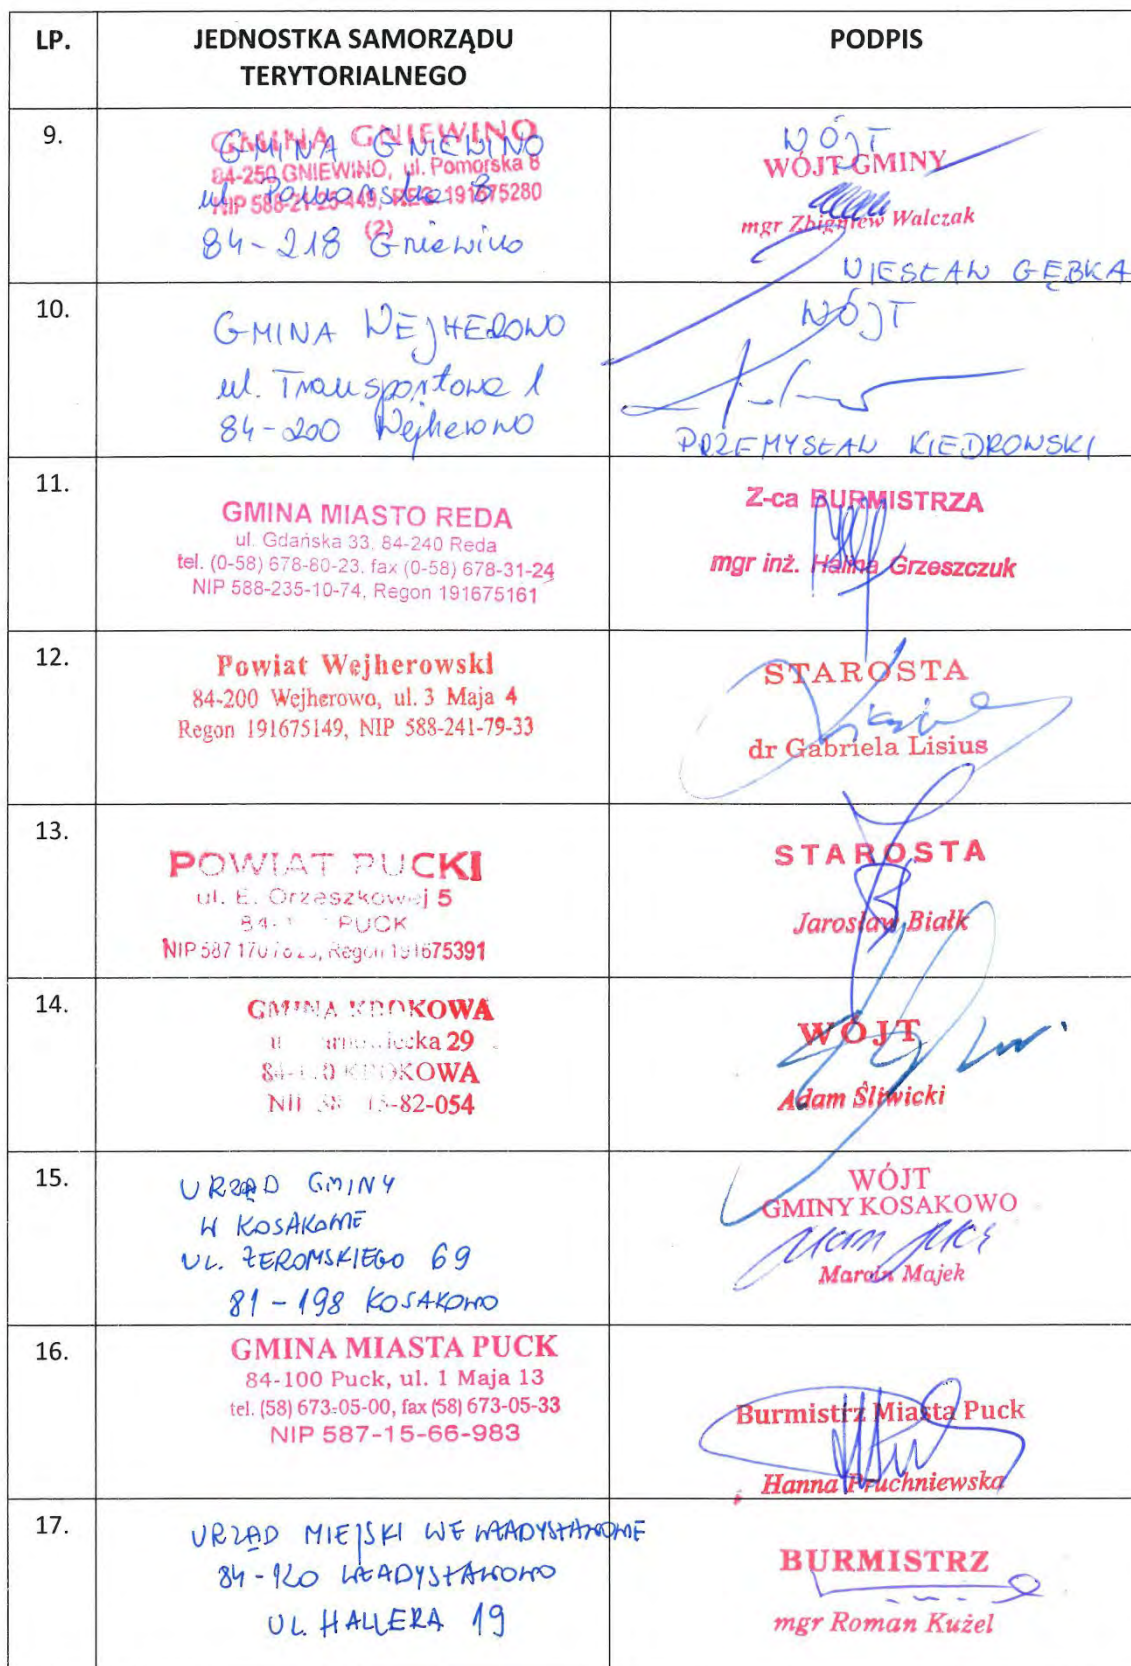 LP.
JEDNOSTKA SAMORZĄDU
TERYTORIALNEGO
PODPIS
9.
GMINA GNIEWINO
84-250 GNIEWINO, ul. Pomorska 8
NIP 588-21-25-449, REG 191675280
(2)
GMINA GNIEWINO
ul. Pomorska 8
84-218 Gniewino
WÓJT
WÓJT GMINY
mgr Zbigniew Walczak
WIESŁAW GĘBKA
10.
GMINA WEJHEROWO
ul. Transportowa 1
84-200 Wejherowo
WÓJT
PRZEMYSŁAW KIEDROWSKI
11.
GMINA MIASTO REDA
ul. Gdańska 33, 84-240 Reda
tel. (0-58) 678-80-23, fax (0-58) 678-31-24
NIP 588-235-10-74, Regon 191675161
Z-ca BURMISTRZA
mgr inż. Halina Grzeszczuk
12.
Powiat Wejherowski
84-200 Wejherowo, ul. 3 Maja 4
Regon 191675149, NIP 588-241-79-33
STAROSTA
dr Gabriela Lisius
13.
POWIAT PUCKI
ul. E. Orzeszkowej 5
PUCK
NIP 587 Regon 191675391
STAROSTA
Jarosław Białk
14.
GMINA KROKOWA
29
KROKOWA
82-054
WÓJT
Adam Śliwicki
15.
URZĄD GMINY
W KOSAKOWIE
UL. ŻEROMSKIEGO 69
81-198 KOSAKOWO
WÓJT
GMINY KOSAKOWO
Marcin Majek
16.
GMINA MIASTA PUCK
84-100 Puck, ul. 1 Maja 13
tel. (58) 673-05-00, fax (58) 673-05-33
NIP 587-15-66-983
Burmistrz Miasta Puck
Hanna Pruchniewska
17.
URZĄD MIEJSKI WE WŁADYSŁAWOWIE
84-120 WŁADYSŁAWOWO
UL. HALLERA 19
BURMISTRZ
mgr Roman Kużel